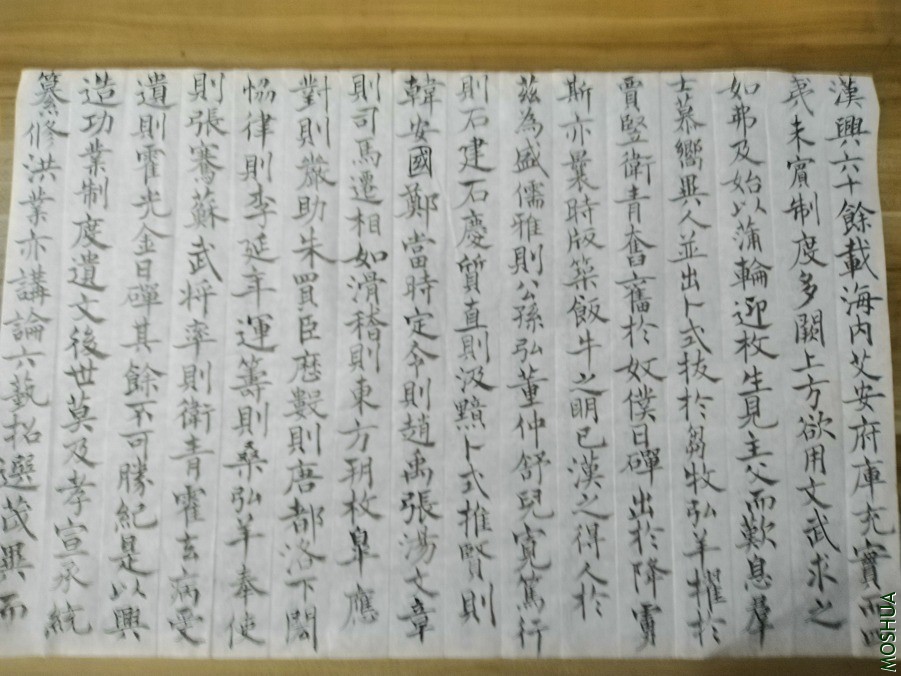 漢興六十餘載海内艾安府庫充實而四
夷未賓制度多闕上方欲用文武求之
如弗及始以蒲輪迎枚生見主父而歎息羣
士慕嚮異人並出卜式拔於芻牧弘羊擢於
賈豎衛青奮舊於奴僕日磾出於降虜
斯亦曩時版築飯牛之明已漢之得人於
茲為盛儒雅則公孫弘董仲舒兒寬篤行
則石建石慶質直則汲黯卜式推賢則
韓安國鄭當時定令則趙禹張湯文章
則司馬遷相如滑稽則東方朔枚皐應
對則嚴助朱買臣歷數則唐都洛下閎
恊律則李延年運籌則桑弘羊奉使
則張騫蘇武將率則衛青霍去病受
遺則霍光金日磾其餘不可勝紀是以興
造功業制度遺文後世莫及孝宣承統
纂修洪業亦講論六藝招選茂異而
MOSHUA